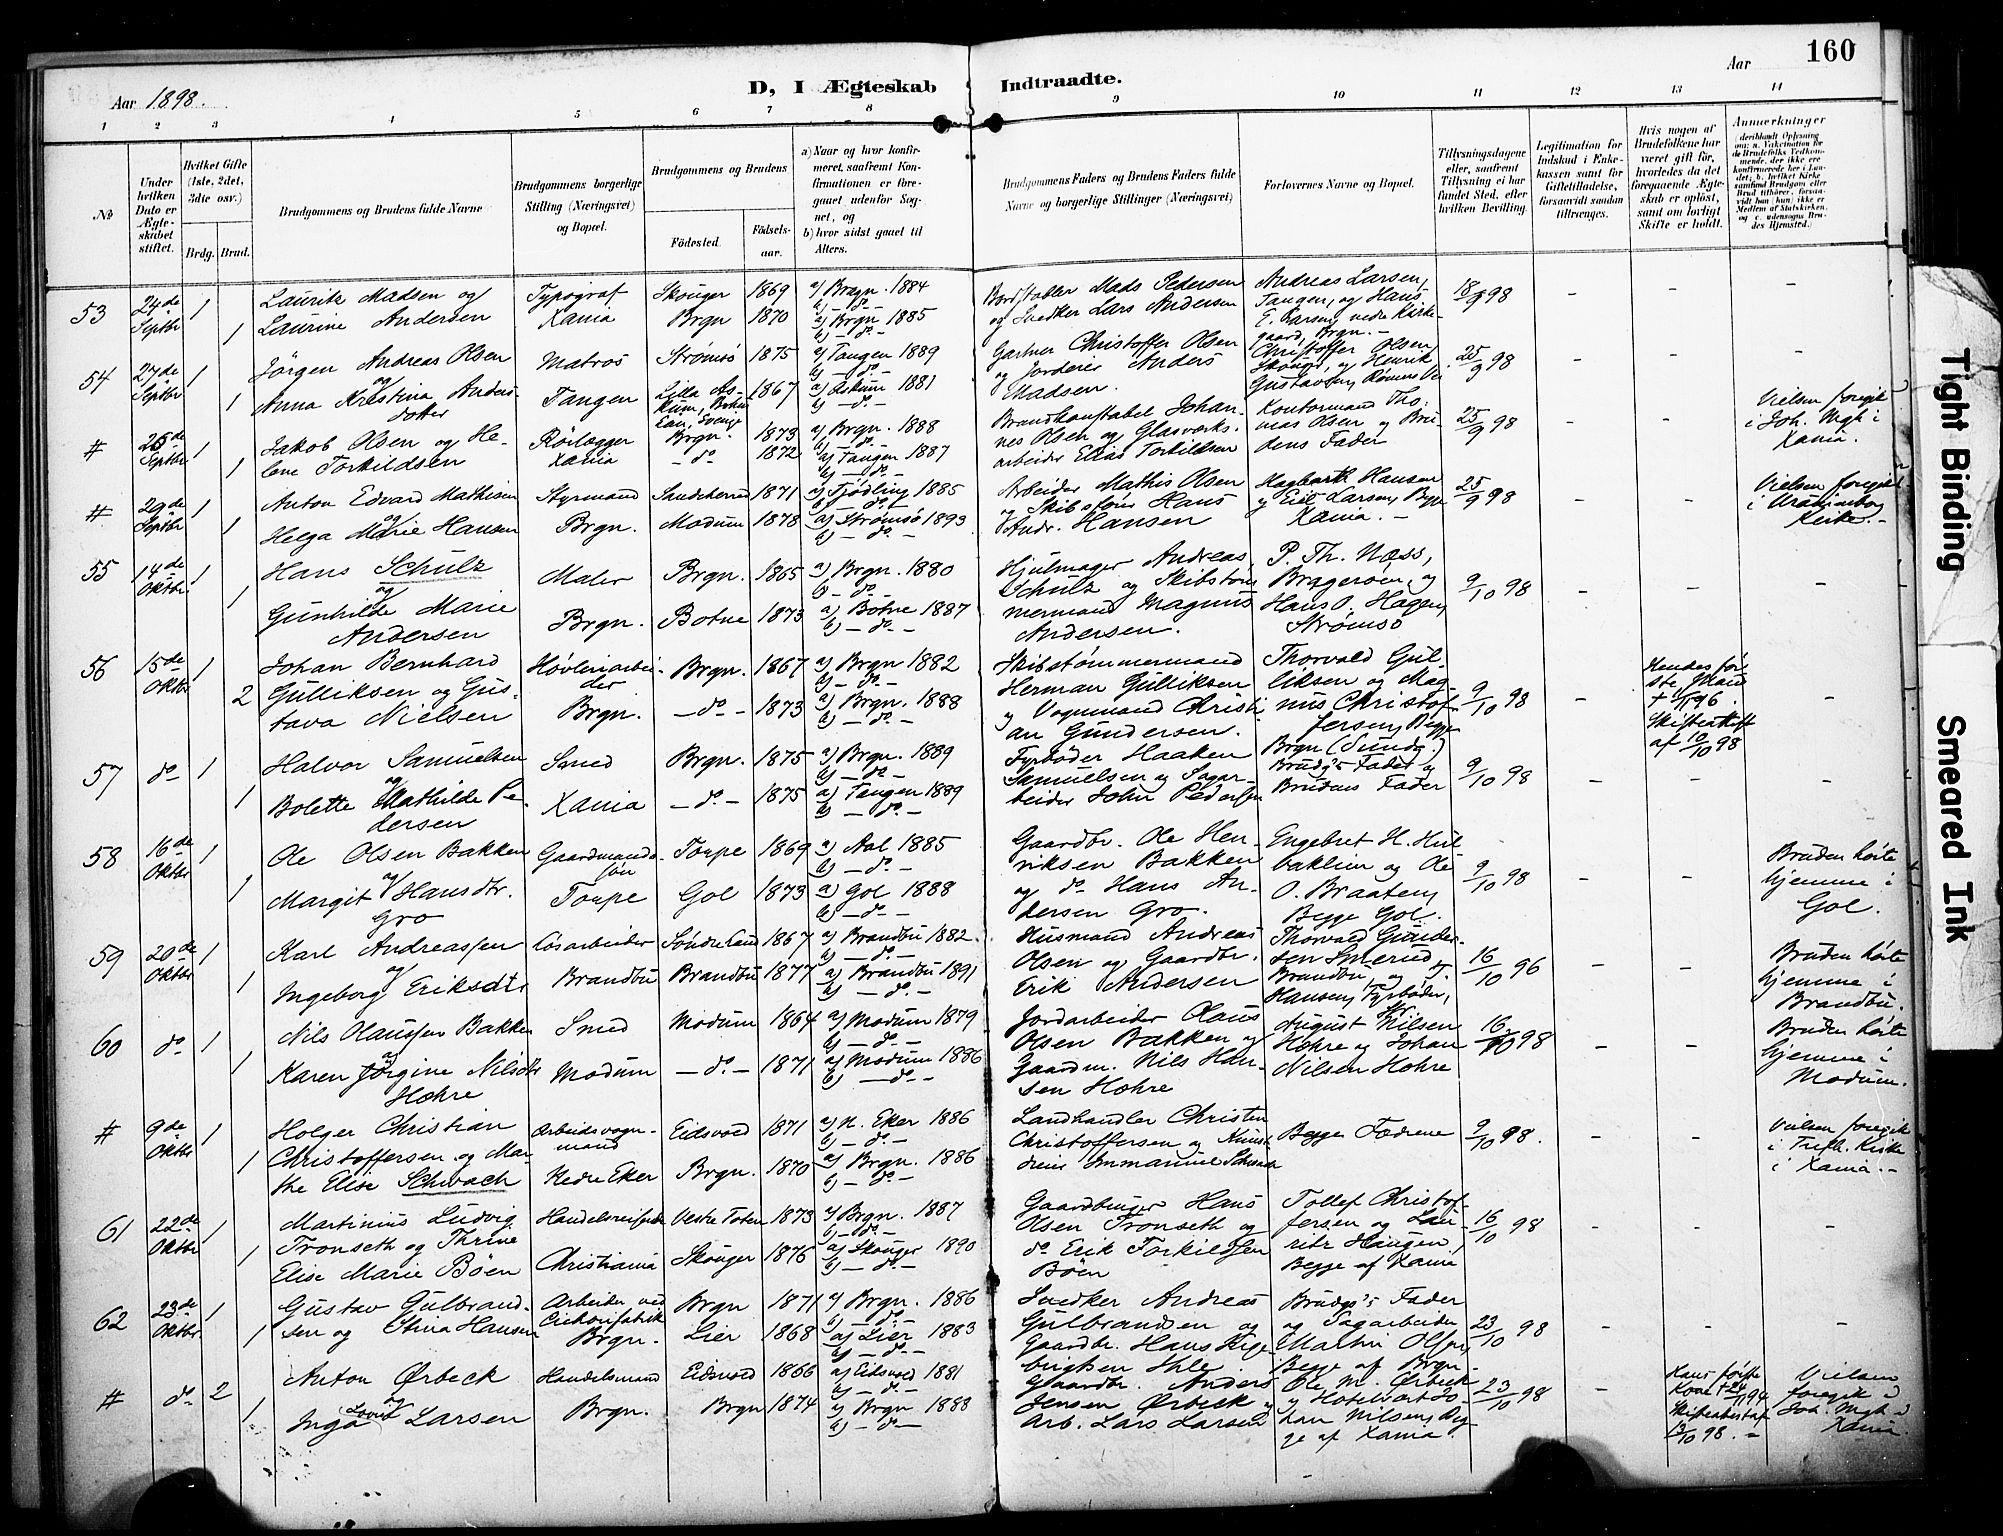 160
Aar 1898.
D, I Ægteskab Indtraadte.
Aar
1 2 3 4 5 6 7 8 9 10 11 12 13 14
No
Under hvilken Dato er Ægteskabet stiftet.
Hvilket Gifte (1ste, 2det, 3die osv.)
Brdg. Brud.
Brudgommens og Brudens fulde Navne
Brudgommens borgerlige Stilling (Næringsvei) og Bopæl.
Brudgommens og Brudens
Fødested.
Fødselsaar.
a) Naar og hvor konfirmeret, saafremt Konfirmationen er foregaaet udenfor Sognet, og
b) hvor sidst gaaet til Alters.
Brudgommens Faders og Brudens Faders fulde Navne og borgerlige Stillinger (Næringsvei)
Forlovernes Navne og Bopæl.
Tillysningsdagene eller, saafremt Tillysning ei har fundet Sted, efter hvilken Bevilling.
Legitimation for Indskud i Enkekassen samt for Giftetilladelse, forsaavidt saadan tiltrænges.
Hvis nogen af Brudefolkene har været gift før, hvorledes da det foregaaende Ægteskab er opløst, samt om lovligt Skifte er holdt.
Anmærkninger
53 24de Septbr 1 1
Lauritz Madsen og
Laurine Andersen
Typograf
Xania
Skouger 1869 a) Bragn. 1884
b) do -
Brgn 1870 a) Brgn 1885
b) do -
Bordstabler Mads Pedersen
og Snedker Lars Andersen
Andreas Larsen,
Tangen, og Hans
E. Larsen, vedre Kirke-
gaard, Brgn. -
18/9 98 - - -
54 24de Septbr 1 1
Jörgen Andreas Olsen
og
Anna Kristina Anders-
doter
Matros
Tangen
Strømsö 1875 a) Tangen 1889
b) - do -
1867 a) Askum 1881
b) - do -
Gartner Christoffer Olsen
og Jordeier Anders
Madsen.
Christoffer Olsen
Skouger, og Henrik
Gustavsen,
25/9 98 - - -
# 25de Septbr 1 1
Jakob Olsen og He-
lene Torkildsen
Rörlægger
Xania
Brgn. 1873 a) Brgn. 1888
b) - do
- do - 1872 a) Tangen 1887
b) - do -
Brandkonstabel Johan-
nes Olsen og Glasværks-
arbeider Elias Torkildsen
Kontormand Tho-
mas Olsen og Bru-
dens Fader
25/9 98 - -
Vielsen foregik
i Joh. Mgh i
Xania.
# 29de Septbr 1 1
Anton Edvard Mathisen
og
Helga Marie Hansen
Styrmand
Brgn.
Sandeherred 1871 a) Tjödling 1885
b) - do -
Modum 1878 a) Strømsö 1893
b) - do -
Arbeider Mathis Olsen
og Skibsförer Hans
Andr. Hansen
Hagbarth Hansen
og Eilt Larsen, Begge
Xania. -
25/9 98 - -
Vielsen foregik
i Uranienborg
Kirke. -
55 14de Oktbr 1 1
Hans Schulz
og
Gunhilde Marie
Andersen
Maler
Brgn.
Brgn. 1865 a) Brgn. 1880
b) - do -
Botne 1873 a) Botne 1887
b) - do -
Hjulmager Andreas
Schulz og Skibstöm-
mermand Magnus
Andersen.
P. Th. Næss,
Bragerøen, og
Hans O. Hagen,
Strømsö
9/10 98 - - -
56 15de Oktbr 1 2
Johan Bernhard
Gulliksen og Gus-
tava Nielsen
Høvleriarbei-
der
Brgn.
Brgn. 1867 a) Brgn 1882
b) - do -
- do - 1873 a) Brgn. 1888
b) - do -
Skibstømmermand
Herman Gulliksen
og Vognmand Christi
an Gundersen.
Thorvald Gul-
liksen og Mag-
nus Christof-
fersen, Begge
Brgn (Sund.)
9/10 98 -
Hendes för-
ste Mand
Skifteattest
af 10/10 98
-
57 do 1 1
Halvor Samuelsen
og
Bolette Mathilde Pe-
dersen
Smed
Xania
Brgn. 1875 a) Brgn. 1889
b) - do -
- do - 1875 a) Tangen 1889
b) - do -
Fyrbøder Haaken
Samuelsen og Sagar-
beider John Pedersen
Brudg's Fader og
Brudens Fader
9/10 98 - - -
58 16de Oktbr 1 1
Ole Olsen Bakken
og
Margit Hansdtr.
Gro
Gaardmands-
søn
Torpe
Torpe 1869 a) Aal 1885
b) - do -
Gol 1873 a) Gol 1888
b) - do -
Gaardbr. Ole Hen-
riksen Bakken
og do Hans An-
dersen Gro.
Engebret H. Hul
bakliin og Ole
O. Braaten,
Begge Gol.
9/10 98 - -
Bruden hörte
hjemme i
Gol.
59 20de Oktbr 1 1
Karl Andreassen
og
Ingeborg Eriksdtr
Løsarbeider
Brandbu
Söndre Land 1867 a) Brandbu 1882.
b) - do -
Brandbu 1877 a) Brandbu 1891
b) - do. -
Husmand Andreas
Olsen og Gaardbr.
Erik Andersen
Thorvald Gunder-
sen Smerud,
Brandbu, og T.
Hansen, Fyrbøder,
16/10 96 - -
Bruden hörte
hjemme i
Brandbu.
60 do 1 1
Nils Olaussen Bakken
og
Karen Jörgine Nilsdtr
Hæhre
Smed
Modum
Modum 1864 a) Modum 1879
b) - do -
- do - 1871 a) Modum 1886
b) - do -
Jordarbeider Olaus
Olsen Bakken og
Gaardm. Nils Han-
sen Hæhre
August Nilsen
Hæhre og Johan
Nilsen Hæhre
16/10 98 - -
Bruden hörte
hjemme i
Modum.
# 9de Oktbr 1 1
Holger Christian
Christoffersen og Mar-
the Elise Schwach
Arbeidsvogn-
mand
Nedre Eker
Eidsvold 1871 a) N. Eker 1886
b) - do -
Brgn. 1870 a) Brgn. 1886
b) - do -
Landhandler Christen
Christoffersen og Kunst
dreier Immanuel Schwach
Begge Fædrene
9/10 98. - -
Vielsen foregik
i Trefl. Kirke
i Xania. -
61 22de Oktbr 1 1
Martinius Ludvig
Tronseth og Thrine
Elise Marie Böen
Handelsreisende
Christiania
Vestre Toten 1873 a) Brgn. 1887
b) - do -
Skouger 1876 a) Skouger 1890
b) - do -
Gaardbruger Hans
Olsen Tronseth og
do Erik Torkildsen
Böen
Tollef Christof-
fersen og Lau-
ritz Haugen,
Begge af Xania
16/10 98 - - -
62 23de Oktbr 1 1
Gustav Gulbrand-
sen og Stina Hansen
Arbeider ved
Cickoriefabrik
Brgn.
Brgn 1871 a) Brgn. 1886
b) - do -
Lier 1868 a) Lier 1883
b) - do -
Snedker Andreas
Gulbrandsen og
Gaardbr. Hans Inge-
brigtsen Ihle.
Brudg's Fader
og Sagarbeider
Martin Olsen,
Begge af Brgn.
23/10 98 - - -
# do 2 1
Anton Ørbeck
og
Inga Lovise Larsen
Handelsmand
Brgn.
Eidsvold 1866 a) Eidsvold 1881
b) - do -
Brgn 1874 a) Brgn 1888
b) - do -
Gaardbr. Anders
Jensen Ørbeck og
Arb. Lars Larsen
Ole M. Ørbeck
og Hotelvært Jo-
han Nilsen, Beg-
ge af Xania.
23/10 98 -
Hans første
Kone
Skifteattest af
13/10 98. -
Vielsen
foregik i
Joh. Mgh i
Xania
Tight Binding
Smeared Ink